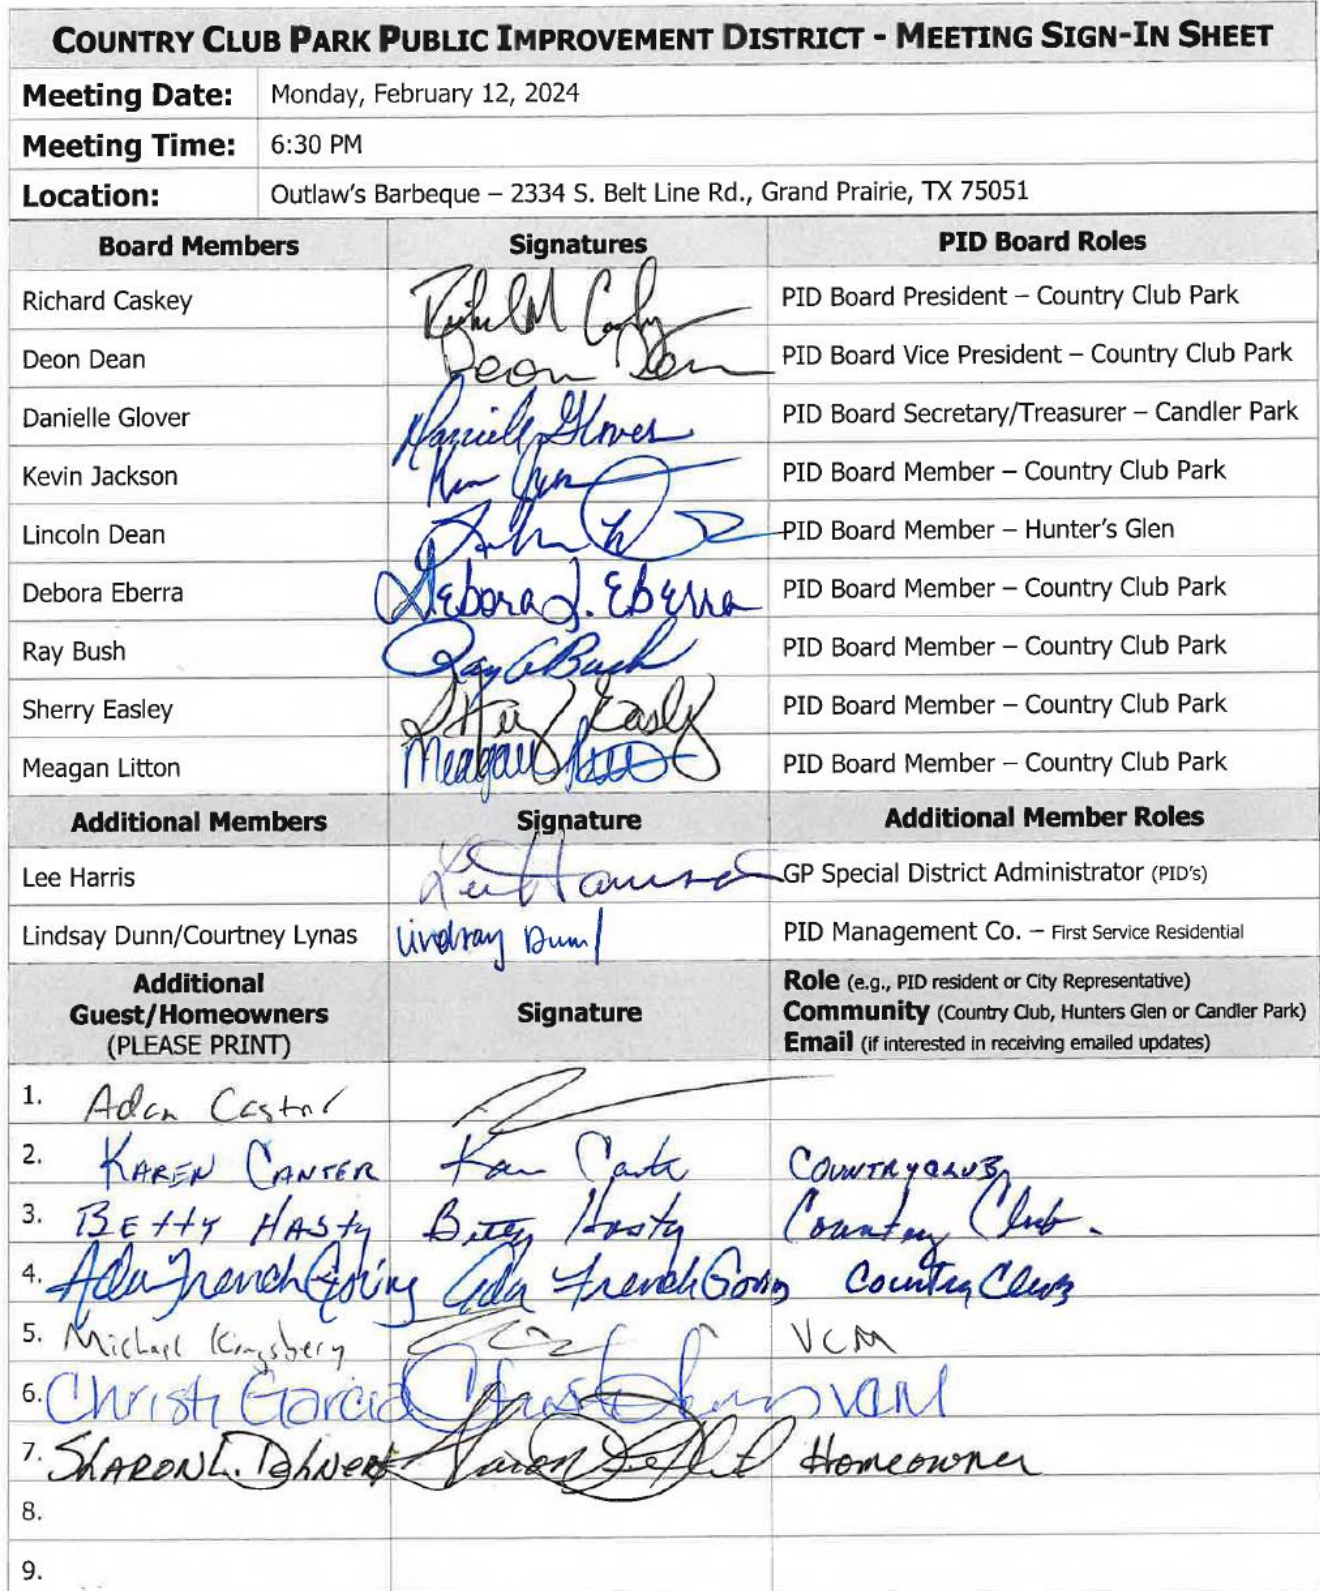 COUNTRY CLUB PARK PUBLIC IMPROVEMENT DISTRICT - MEETING SIGN-IN SHEET
Meeting Date: Monday, February 12, 2024
Meeting Time: 6:30 PM
Location: Outlaw's Barbeque – 2334 S. Belt Line Rd., Grand Prairie, TX 75051
Board Members Signatures PID Board Roles
Richard Caskey PID Board President – Country Club Park
Deon Dean Deon Dean PID Board Vice President – Country Club Park
Danielle Glover Danielle Glover PID Board Secretary/Treasurer – Candler Park
Kevin Jackson PID Board Member – Country Club Park
Lincoln Dean PID Board Member – Hunter's Glen
Debora Eberra Debora J. Eberra PID Board Member – Country Club Park
Ray Bush Ray A Bush PID Board Member – Country Club Park
Sherry Easley Sherry Easley PID Board Member – Country Club Park
Meagan Litton Meagan PID Board Member – Country Club Park
Additional Members Signature Additional Member Roles
Lee Harris Lee Harris GP Special District Administrator (PID's)
Lindsay Dunn/Courtney Lynas Lindsay Dunn PID Management Co. – First Service Residential
Additional
Guest/Homeowners
(PLEASE PRINT)
Signature
Role (e.g., PID resident or City Representative)
Community (Country Club, Hunters Glen or Candler Park)
Email (if interested in receiving emailed updates)
1. Adan Castor
2. KAREN CANTER COUNTRY CLUB
3. BETTY HASTY Betty Hasty Country Club.
4. Ada French Going Ada French Going Country Club
5. Michael Kingsbery VCM
6. Christi Garcia VCM
7. SHARON L. Homeowner
8.
9.